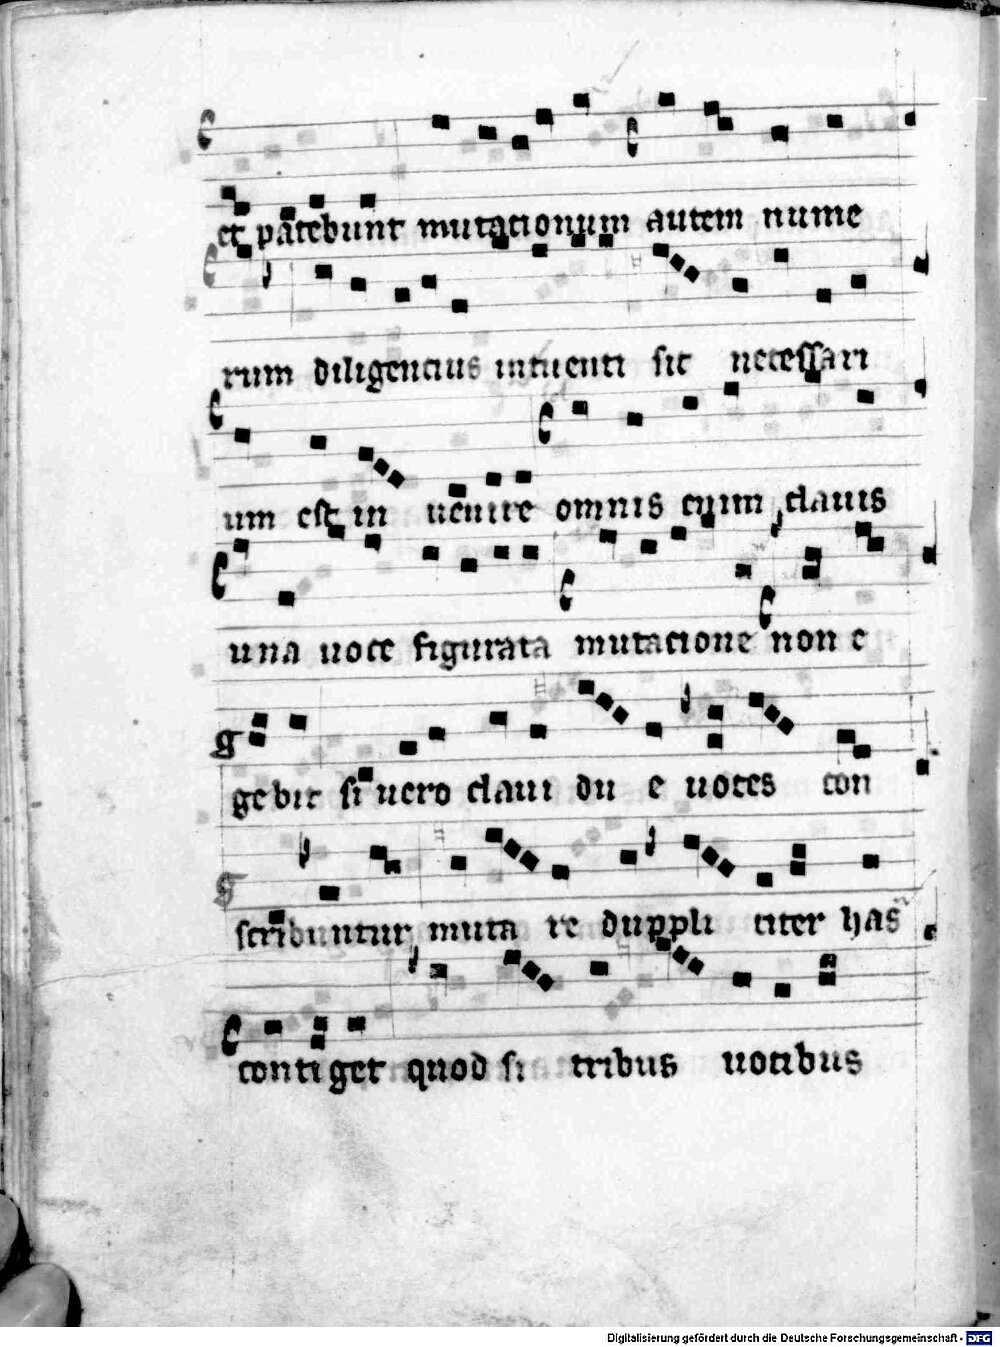 et patebunt mutationum autem nume
rum diligencius intuenti sit necessari
um est in uenire omnis enim clauis
una uoce figurata mutacione non e
gebit si uero claui du e uoces con
scribuntur muta re duppli citer has
conti get quod si tribus uocibus
Digitalisierung gefördert durch die Deutsche Forschungsgemeinschaft - DFG